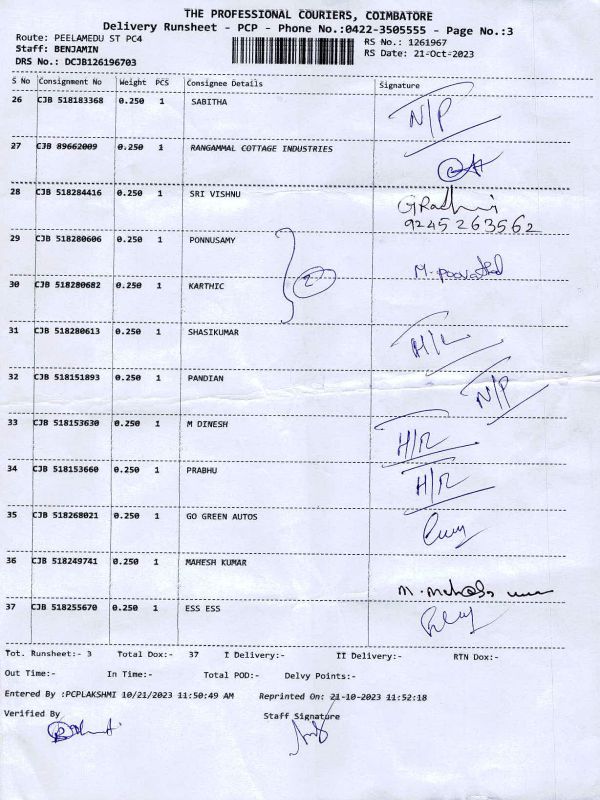 THE PROFESSIONAL COURIERS, COIMBATORE
Delivery Runsheet - PCP - Phone No.:0422-3505555 - Page No.:3
Route: PEELAMEDU ST PC4 RS No.: 1261967
Staff: BENJAMIN RS Date: 21-Oct-2023
DRS No.: DCJB126196703
S No Consignment No Weight PCS Consignee Details Signature
26 CJB 518183368 0.250 1 SABITHA N/P
27 CJB 89662009 0.250 1 RANGAMMAL COTTAGE INDUSTRIES
28 CJB 518284416 0.250 1 SRI VISHNU
9245 263562
29 CJB 518280606 0.250 1 PONNUSAMY
2
30 CJB 518280682 0.250 1 KARTHIC
31 CJB 518280613 0.250 1 SHASIKUMAR H/L
32 CJB 518151893 0.250 1 PANDIAN N/P
33 CJB 518153630 0.250 1 M DINESH H/R
34 CJB 518153660 0.250 1 PRABHU H/R
35 CJB 518268021 0.250 1 GO GREEN AUTOS
36 CJB 518249741 0.250 1 MAHESH KUMAR
37 CJB 518255670 0.250 1 ESS ESS
Tot. Runsheet:- 3 Total Dox:- 37 I Delivery:- II Delivery:- RTN Dox:-
Out Time:- In Time:- Total POD:- Delvy Points:-
Entered By :PCPLAKSHMI 10/21/2023 11:50:49 AM Reprinted On: 21-10-2023 11:52:18
Verified By Staff Signature